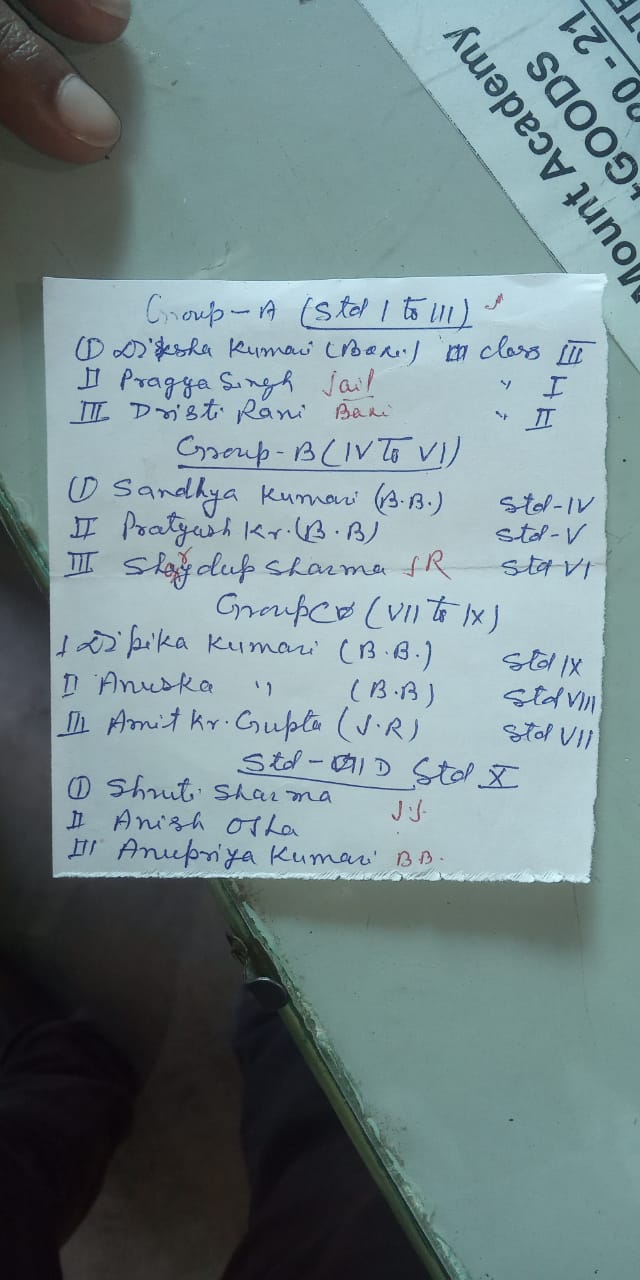 Mount Academy
GOODS
20-21
Group-A (Std I to III)
(I) Diksha Kumari (Bari) class III
II Pragya Singh Jail " I
III Dristi Rani Bari " II
Group-B (IV To VI)
(I) Sandhya Kumari (B.B.) Std-IV
II Pratyush Kr. (B.B) Std-V
III Sharma JR Std VI
Group C (VII to IX)
I Dipika Kumari (B.B.) Std IX
II Anuska " (B.B) Std VIII
III Amit Kr. Gupta (J.R) Std VII
Std - D Std X
(I) Shruti Sharma
II Anish Ojha J.J.
III Anupriya Kumari B B.